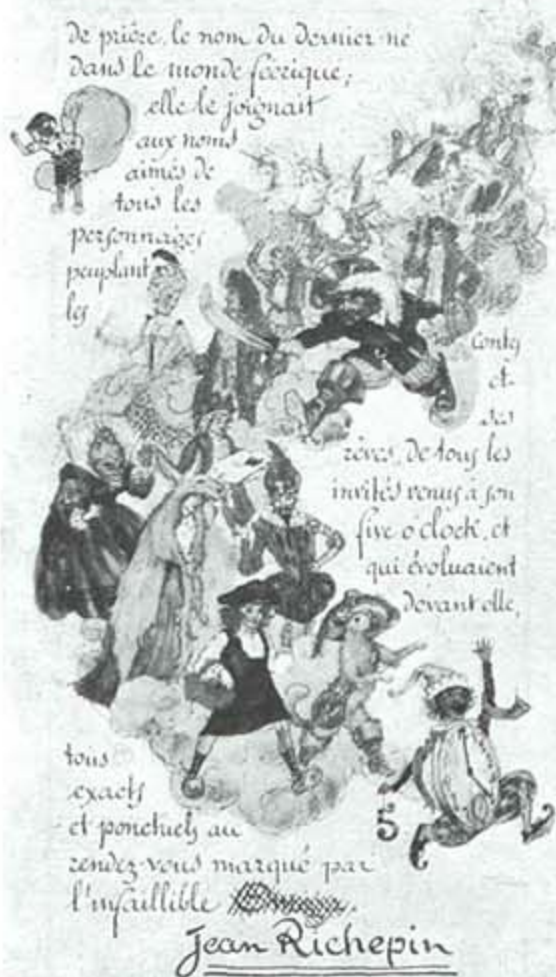 de prière, le nom du dernier né
dans le monde féerique;
elle le joignait
aux noms
aimés de
tous les
personnages
peuplant
les
contes
et
ses
rêves, de tous les
invités venus à son
five o clock, et
qui évoluaient
devant elle,
tous
exacts
et ponctuels au
rendez-vous marqué par
l'infaillible
5
Jean Richepin